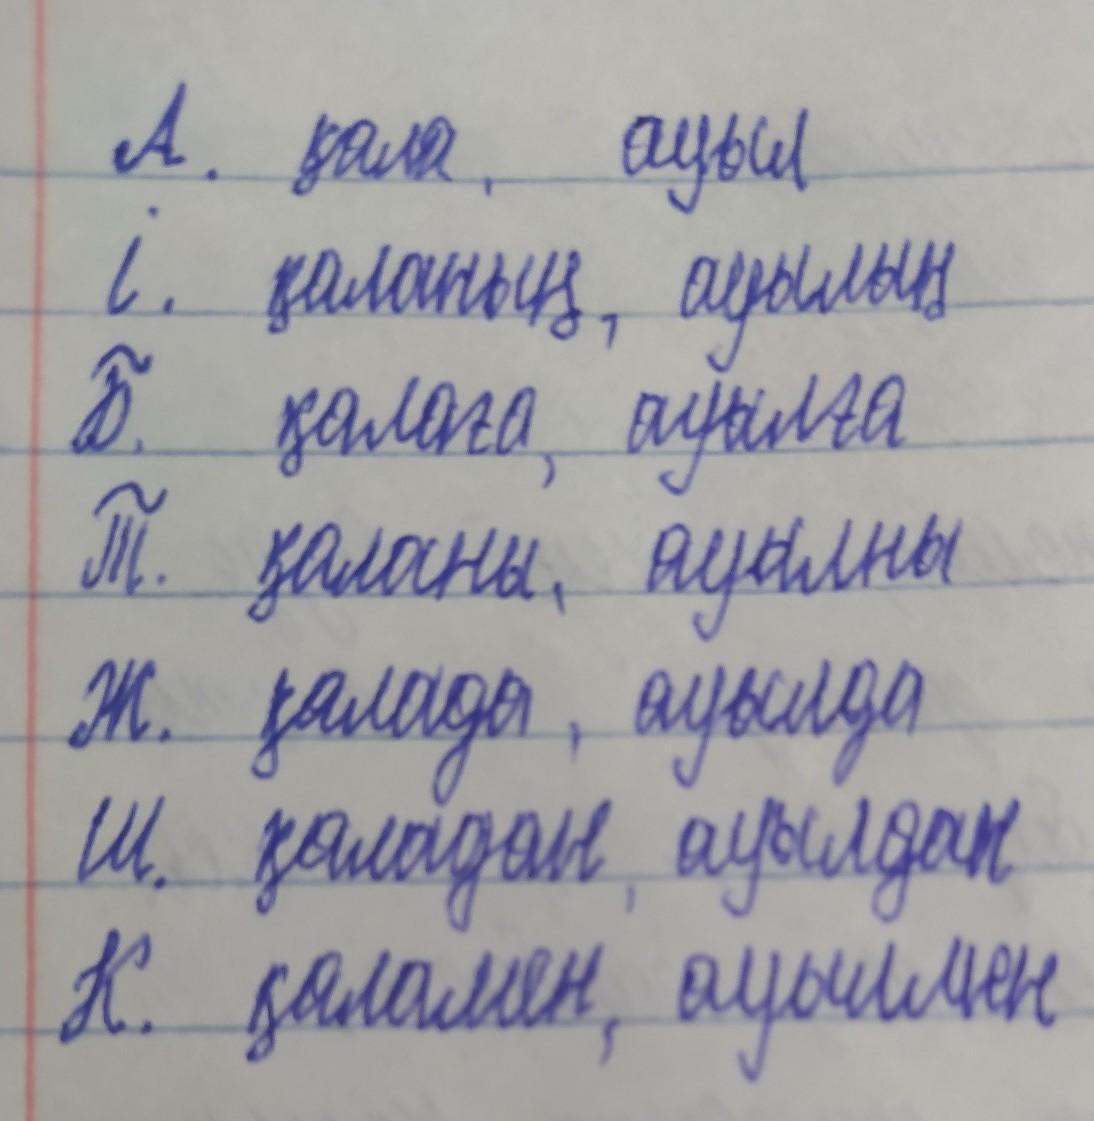 А. қала, ауыл
І. қаланың, ауылың
Б. қалаға, ауылға
Т. қаланы, ауылны
Ж. қалада, ауылда
Ш. қаладан, ауылдан
К. қаламен, ауылмен